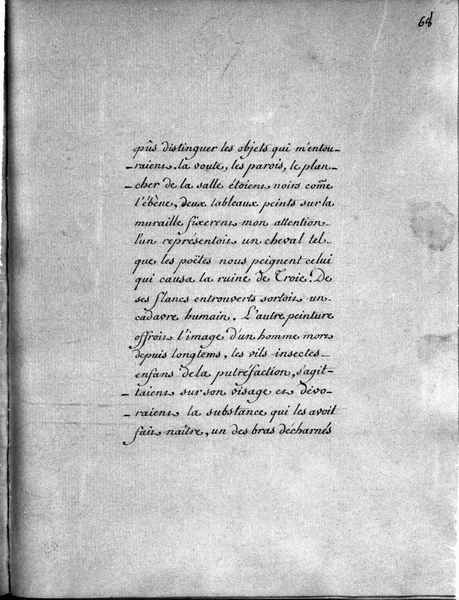 68
pûs distinguer les objets qui m'entou-
-raient. la voute, les parois, le plan-
-cher de la salle étoient noirs come
l'ébène, deux tableaux peints sur la
muraille fixerent mon attention.
l'un représentoit un cheval tel
que les poëtes nous peignent celui
qui causa la ruine de Troie. De
ses flancs entrouverts sortoit un
cadavre humain. L'autre peinture
offroit l'image d'un homme mort
depuis longtems, les vils insectes
enfans de la putrefaction, s'agit-
-taient sur son visage et dévo-
-raient la substance qui les avoit
fait naître, un des bras décharnés